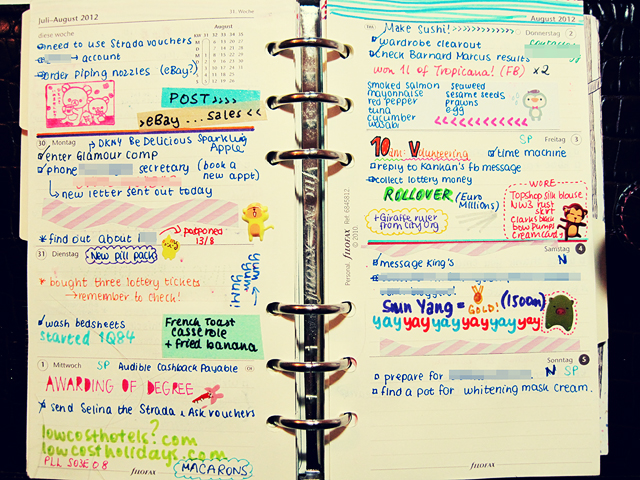 Juli–August 2012
31. Woche
diese woche
need to use Strada vouchers
account
order piping nozzles (eBay?)
August
POST >>>>
>eBay ... sales <<
30 Montag
DKNY Be Delicious Sparkling Apple
enter Glamour comp
phone secretary (book a new appt)
new letter sent out today
*find out about
postponed 13/8
31 Dienstag
New pill pack
* bought three lottery tickets
→remember to check!
yum yum yum!
wash bedsheets
started 1Q84
French Toast
casserole
+ fried banana
1 Mittwoch
SP
Audible Cashback Payable
CH
AWARDING OF DEGREE
send Selina the Strada & Ask vouchers
lowcosthotels?.com
lowcostholidays.com
PLL S03E08
MACARONS
filofax
Personal filofax Ref. 6845812
© 2010
August 2012
Make Sushi! >>>>>>>>>>
Donnerstag 2
wardrobe clearout
contacts
check Barnard Marcus results
won 1L of Tropicana! (FB) x2
smoked salmon
mayonnaise
red pepper
tuna
cucumber
wasabi
seaweed
sesame seeds
prawns
egg
<<<<<<<<<<
10am: Volunteering
SP
Freitag 3
time machine
reply to Kankan's fb message
collect lottery money
ROLLOVER (Euro Millions)
+Giraffe ruler
from City Org
WORE
Topshop silk blouse
UW3 rust
skirt
Clarks black
bow pumps
Cream cardi
Samstag 4
N
message King's
Sun Yang = GOLD! (1500m)
yay yay yay yay yay yay yay
Sonntag 5
N SP
prepare for
find a pot for whitening mask cream.
filofax